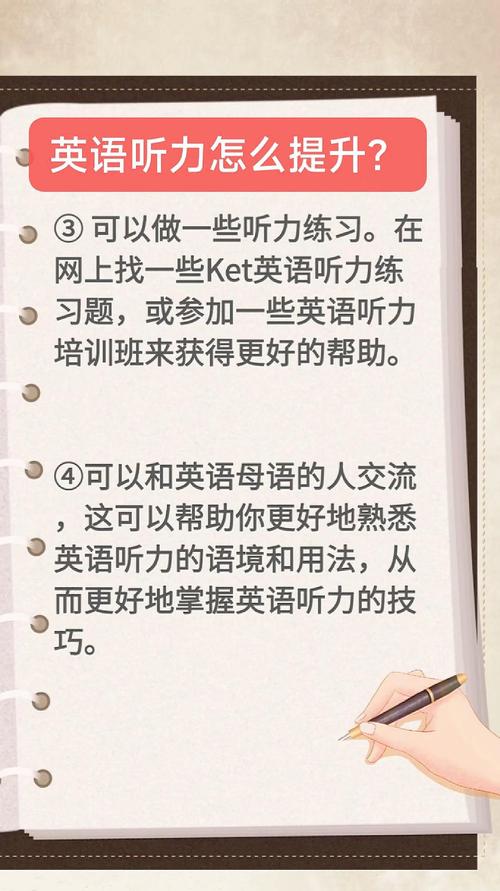 英语听力怎么提升?
③ 可以做一些听力练习。在
网上找一些Ket英语听力练
习题，或参加一些英语听力
培训班来获得更好的帮助。
④可以和英语母语的人交流
，这可以帮助你更好地熟悉
英语听力的语境和用法，从
而更好地掌握英语听力的技
巧。